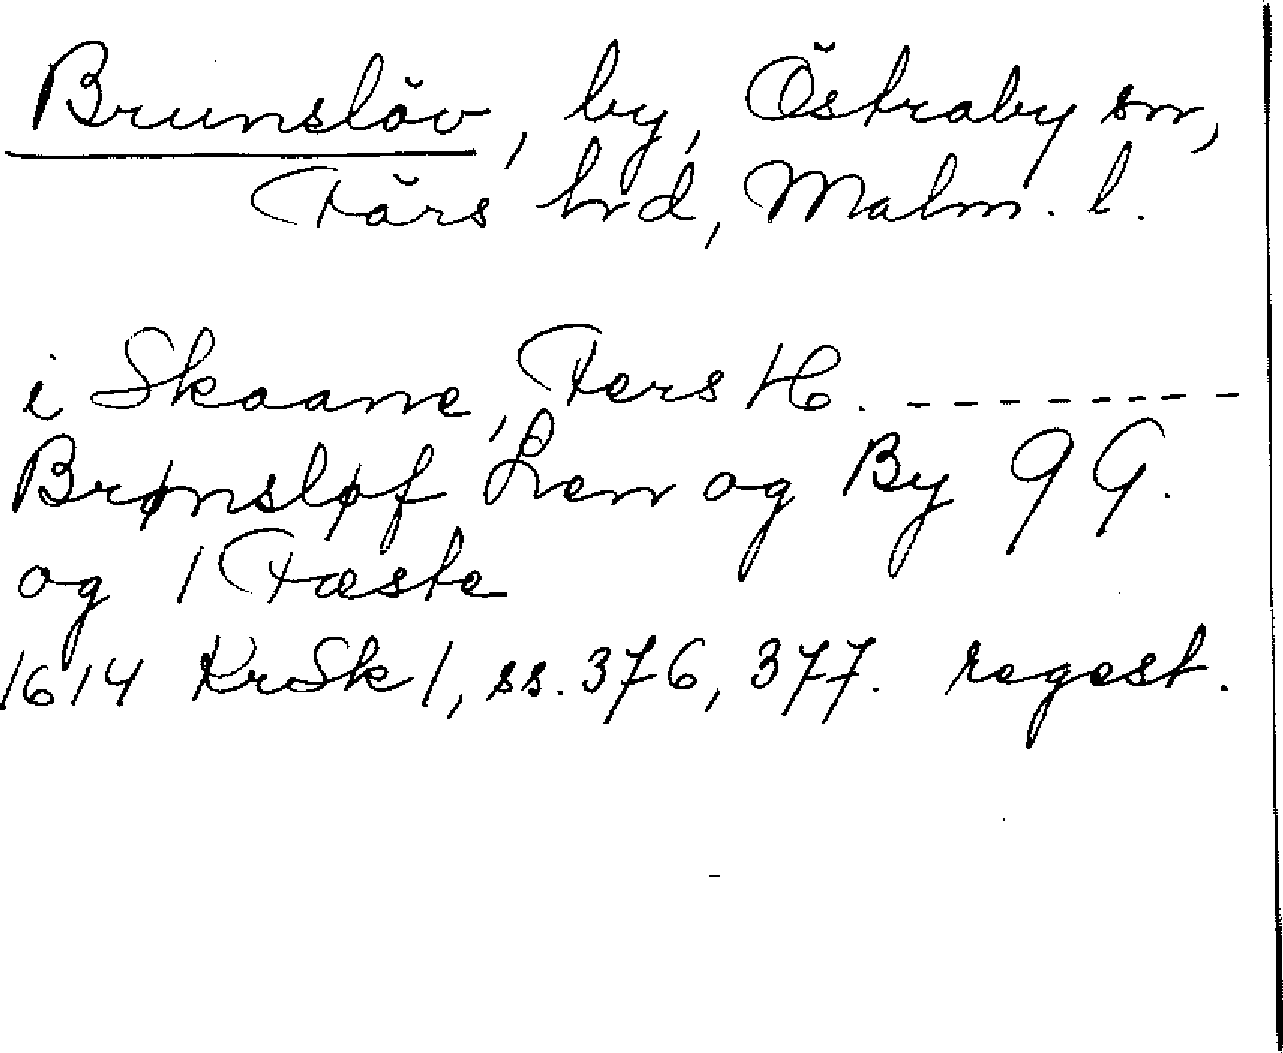 Brunslöv, by, Östraby sn,
Färs hd, Malm. l.
i Skaane, Fers H. - - - - - - - - -
Brønsløf Len og By 9 G.
og 1 Fæste
1614 KrSk 1, ss. 376, 377. regest.